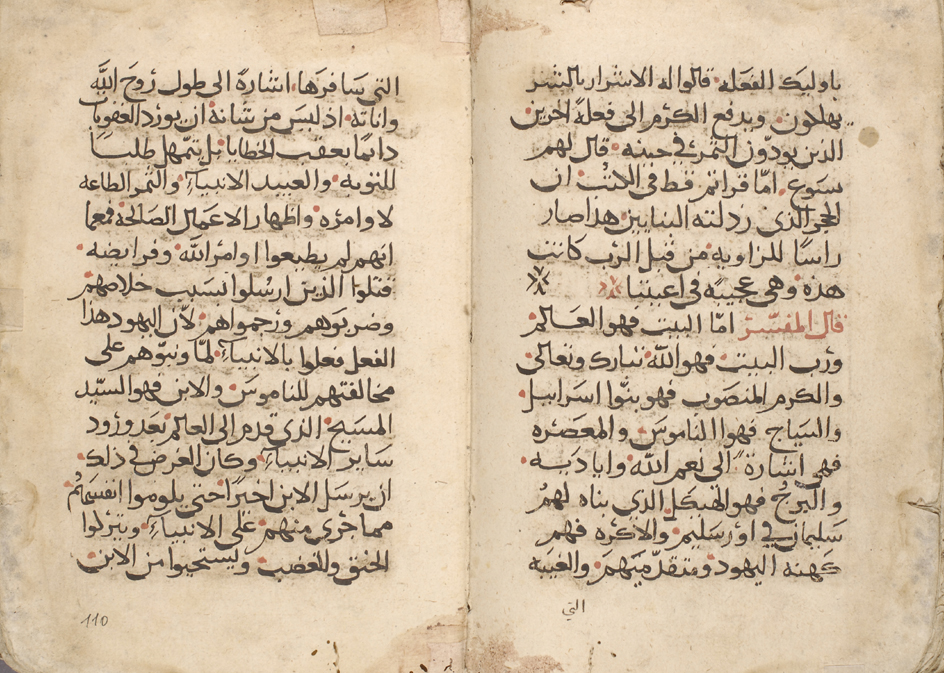 باوليك الفعله قالوا له الاشرار بالشر
يهلكون ويدفع الكرم الى فعلة اخرين
الذين يودون الثمر في حينه قال لهم
يسوع اما قراتم قط في الكتب ان
الحجر الذي رذلته البنايين هذا صار
راسا للزاويه من قبل الرب كانت
هذه وهي عجيبه في اعيننا
قال المفسر اما البيت فهو العالم
ورب البيت فهو الله تبارك وتعالى
والكرم المنصوب فهو بنوا اسراييل
والسياج فهوا الناموس والمعصره
فهي اشارة الى نعم الله واياديه
والبرج فهو الهيكل الذي بناه لهم
سليمان في اورسليم والاكره فهم
كهنه اليهود ومتقدميهم والغيبه
التي
التي سافرها اشارة الى طول روح الله
واناته اذ ليس من شانه ان يورد العقوبات
دايما بعقب الخطايا بل يتمهل طلبا
للتوبه والعبيد الانبياء والثمر الطاعه
لاوامره واظهار الاعمال الصالحة فمعما
انهم لم يطيعوا اوامر الله وفرايضه
قتلوا الذين ارسلوا بسبب خلاصهم
وضربوهم ورجموهم لان اليهود هذا
الفعل فعلوا بالانبياء لما ونبوهم على
مخالفتهم للناموس والابن فهو السيد
المسيح الذي قدم الى العالم بعد ورود
ساير الانبياء وكان الغرض في ذلك
ان يرسل الابن اخيرا حتى يلوموا انفسهم
مما جرى منهم على الانبياء ويتركوا
الحنق والغضب ويستحيوا من الابن
110